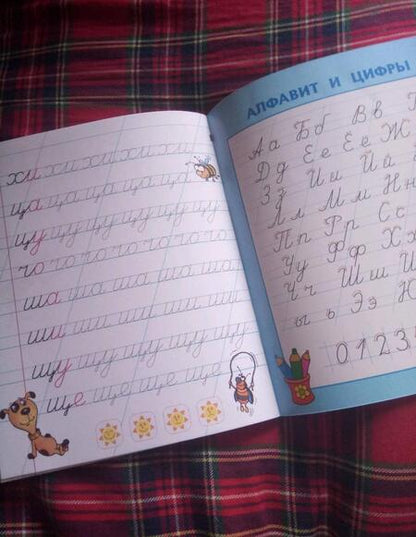 хи хи хи хи хи хи
ца ца ца ца ца ца
цу цу цу цу цу цу
чо чо чо чо чо чо чо
ша ша ша ша ша
ши ши ши ши ши
щу щу щу щу щу
ще ще ще ще ще
АЛФАВИТ И ЦИФРЫ
Аа Бб Вв
Дд Ее Ёё Ж
Зз Ии Йй
Лл Мм Нн
Пп Рр Сс
Уу Фф Хх
Чч Шш Щ
ы ь Ээ Ю
0 1 2 3